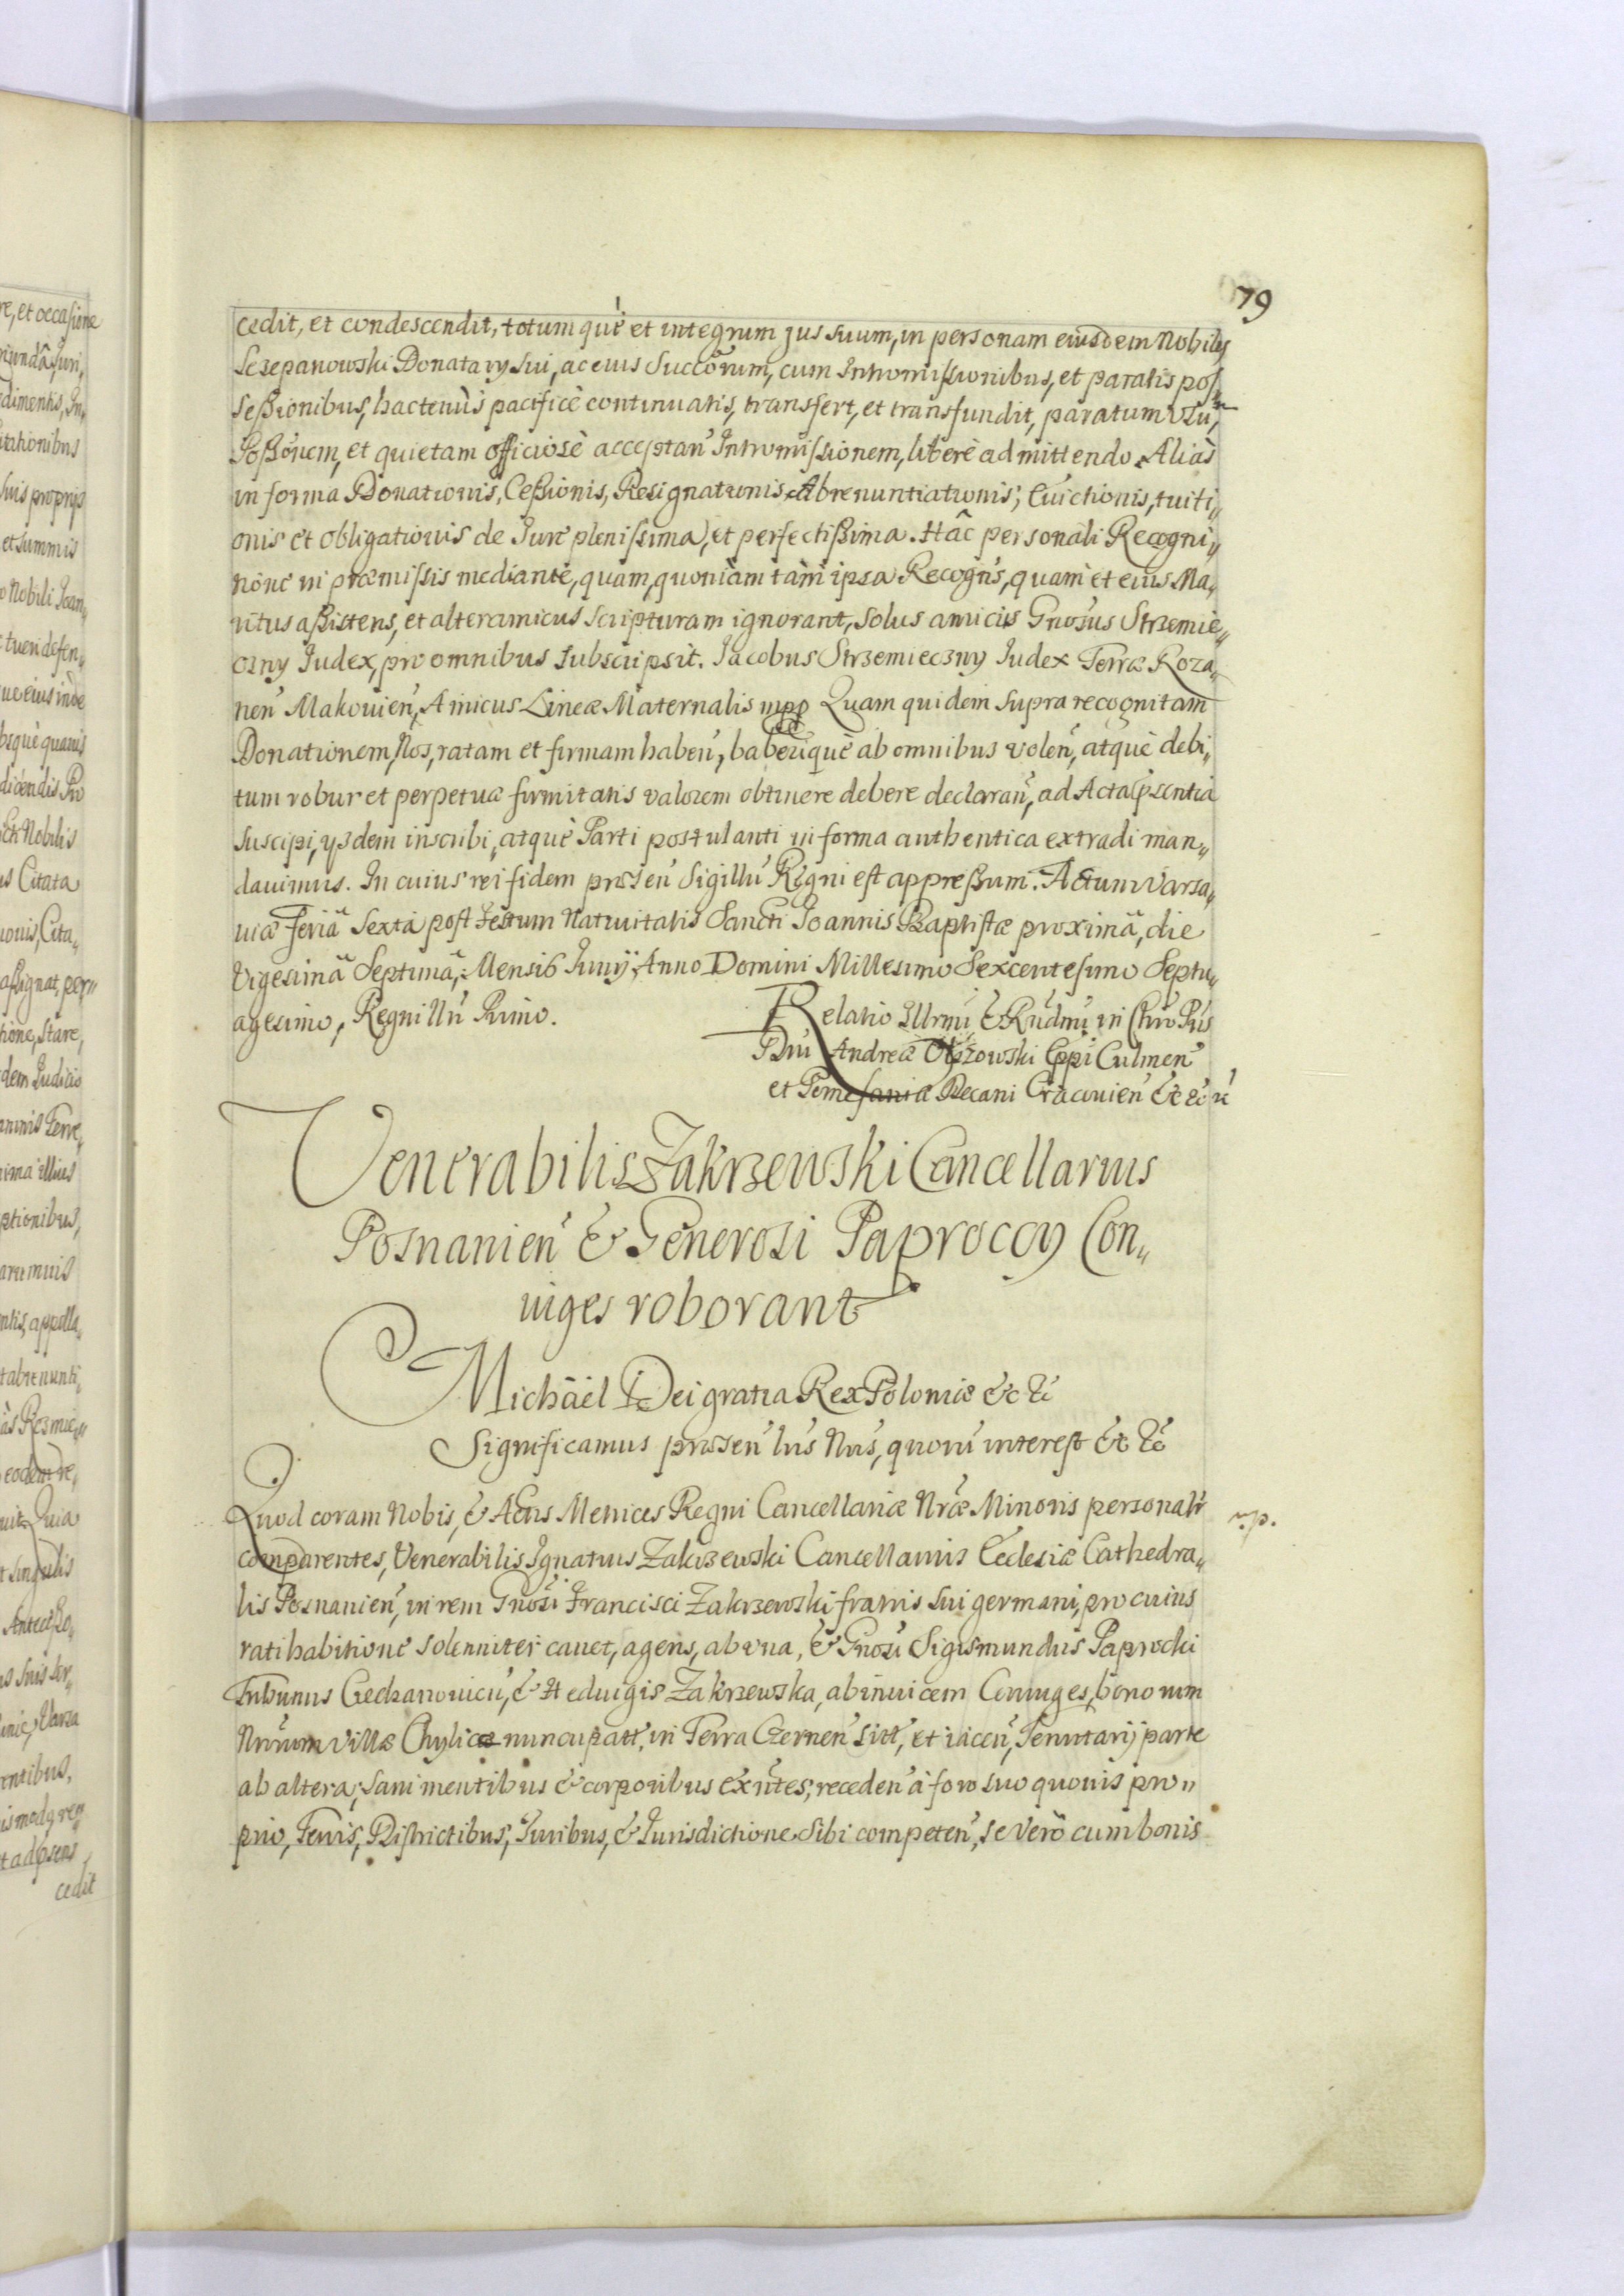 79
cedit, et condescendit, totum què et integrum jus suum, in personam eiusdem Nobilis
Sczepanowski Donatarij sui, ac eius Succõrum, cum Intromissionibus, et paratis pos„
sessionibus, hactenùs pacificè continuatis, transfert, et transfundit, paratum usũ,
Possõnem, et quietam officiosè acceptañ Intromissionem, liberè admittendo. Aliàs
in forma Donationis, Cessionis, Resignationis Abrenuntiationis, Euictionis, tuiti„
onis et obligationis de Iure plenissima, et perfectissima. Hâc personali Recogni„
tione in præmissis mediante, quam, quoniàm tàm ipsa Recogñs, quam et eius Ma„
ritus assistens, et alter amicus scripturam ignorant, solus amicus Gnosus Strzemie„
czny Iudex, pro omnibus subscripsit. Iacobus Strzemieczny Iudex Terræ Roza„
neñ Makouieñ, Amicus Lineæ Maternalis mpp Quam quidem supra recognitam
Donationem, Nos, ratam et firmam habeñ, haberiquè ab omnibus voleñ, atquè debi„
tum robur et perpetuæ firmitatis valorem obtinere debere declarañ, ad Acta pñsentia
suscipi, ysdem inscribi, atquè Parti postulanti in forma authentica extradi man„
dauimus. In cuius rei fidem præseñ Sigillũ Regni est appressum. Actum Varsa„
uiæ Feriâ Sextâ post Festum Natiuitatis Sancti Ioannis Baptistæ proximâ, die
Vigesimâ Septimâ, Mensis Iunij, Anno Domini Millesimo Sexcentesimo Septu„
agesimo, Regni Nri Primo.
Relatio Illrmi & Rudmi in Chro Pris
Dni Andreæ Olszowski Eppi Culmeñ
et Pomesaniæ Decani Cracouieñ &c &c
Venerabilis Zakrzewski Cancellarius
Posnanieñ & Generosi Paproccy Con„
iuges roborant
Michäel Dei gratia Rex Poloniæ &c &c
Significamus præseñ lris Nris, quorũ interest &c &c
Quod coram Nobis, & Actis Metrices Regni Cancellariæ Nræ Minoris personalr
comparentes, Venerabilis Ignatius Zakrzewski Cancellarius Ecclesiæ Cathedra„
lis Posnanieñ, in rem Gnosi Francisci Zakrzewski fratris sui germani, pro cuius
ratihabitione solenniter cauet, agens, ab una, & Gnosi Sigismundus Paprocki
Tribunus Ciechanouieñ, & Heduigis Zakrzewska, abinuicem Coniuges, bonorum
Nrorum Villæ Chylice nuncupatt, in Terra Czerneñ sitt, et iaceñ, Tenutarij parte
ab altera, sani mentibus & corporibus exñtes, recedeñ à foro suo quouis pro„
prio, Terris, Districtibus, Iuribus, & Iurisdictione sibi competeñ, se verò cum bonis